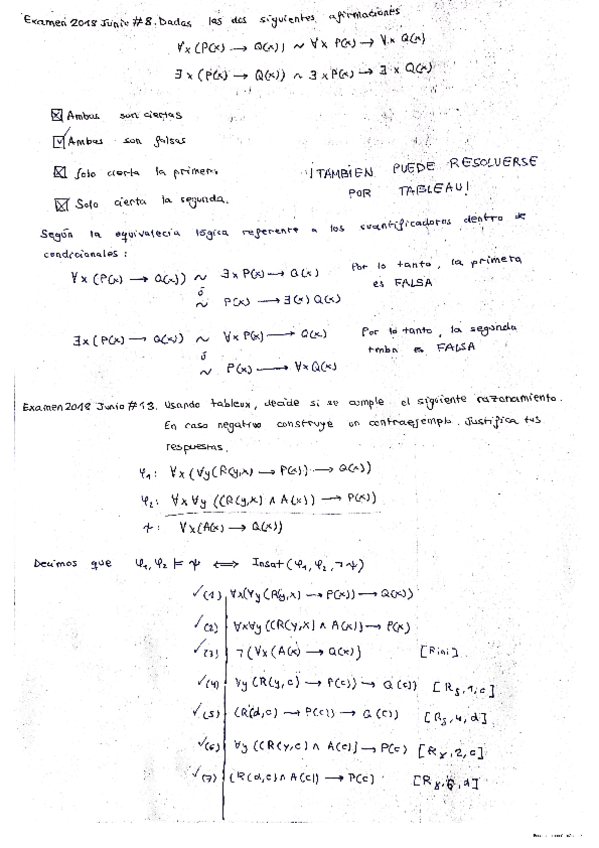 Examen 2018 Junio #8. Dadas las dos siguientes afirmaciones
∀x (P(x) → Q(x)) ~ ∀x P(x) → ∀x Q(x)
∃x (P(x) → Q(x)) ~ ∃x P(x) → ∃x Q(x)
Ambas son ciertas
Ambas son falsas
Solo cierta la primera
Solo cierta la segunda.
¡TAMBIEN PUEDE RESOLVERSE
POR TABLEAU!
Según la equivalecia lógica referente a los cuantificadores dentro de
condicionales:
∀x (P(x) → Q(x)) ~ ∃x P(x) → Q(x)
ó
~ P(x) → ∃(x) Q(x)
Por lo tanto, la primera
es FALSA
∃x (P(x) → Q(x)) ~ ∀x P(x) → Q(x)
ó
~ P(x) → ∀x Q(x)
Por lo tanto, la segunda
tmbn es FALSA
Examen 2018 Junio #13. Usando tableux, decide si se cumple el siguiente razonamiento.
En caso negativo construye un contraejemplo. Justifica tus
respuestas.
φ1: ∀x (∀y (R(y,x) → P(x)) → Q(x))
φ2: ∀x ∀y ((R(y,x) ∧ A(x)) → P(x))
ψ: ∀x (A(x) → Q(x))
Decimos que φ1, φ2 ⊨ ψ ⟺ Insat (φ1, φ2, ¬ψ)
✓(1) ∀x(∀y (R(y,x) → P(x)) → Q(x))
✓(2) ∀x∀y ((R(y,x) ∧ A(x)) → P(x)
✓(3) ¬(∀x (A(x) → Q(x)) [Rini]
✓(4) ∀y (R(y,c) → P(c)) → Q(c)) [Rδ, 1, c]
✓(5) (R(d,c) → P(c)) → Q(c)) [Rδ, 4, d]
✓(6) ∀y ((R(y,c) ∧ A(c)] → P(c) [Rγ, 2, c]
✓(7) (R(d,c) ∧ A(c)) → P(c) [Rγ, 6, d]